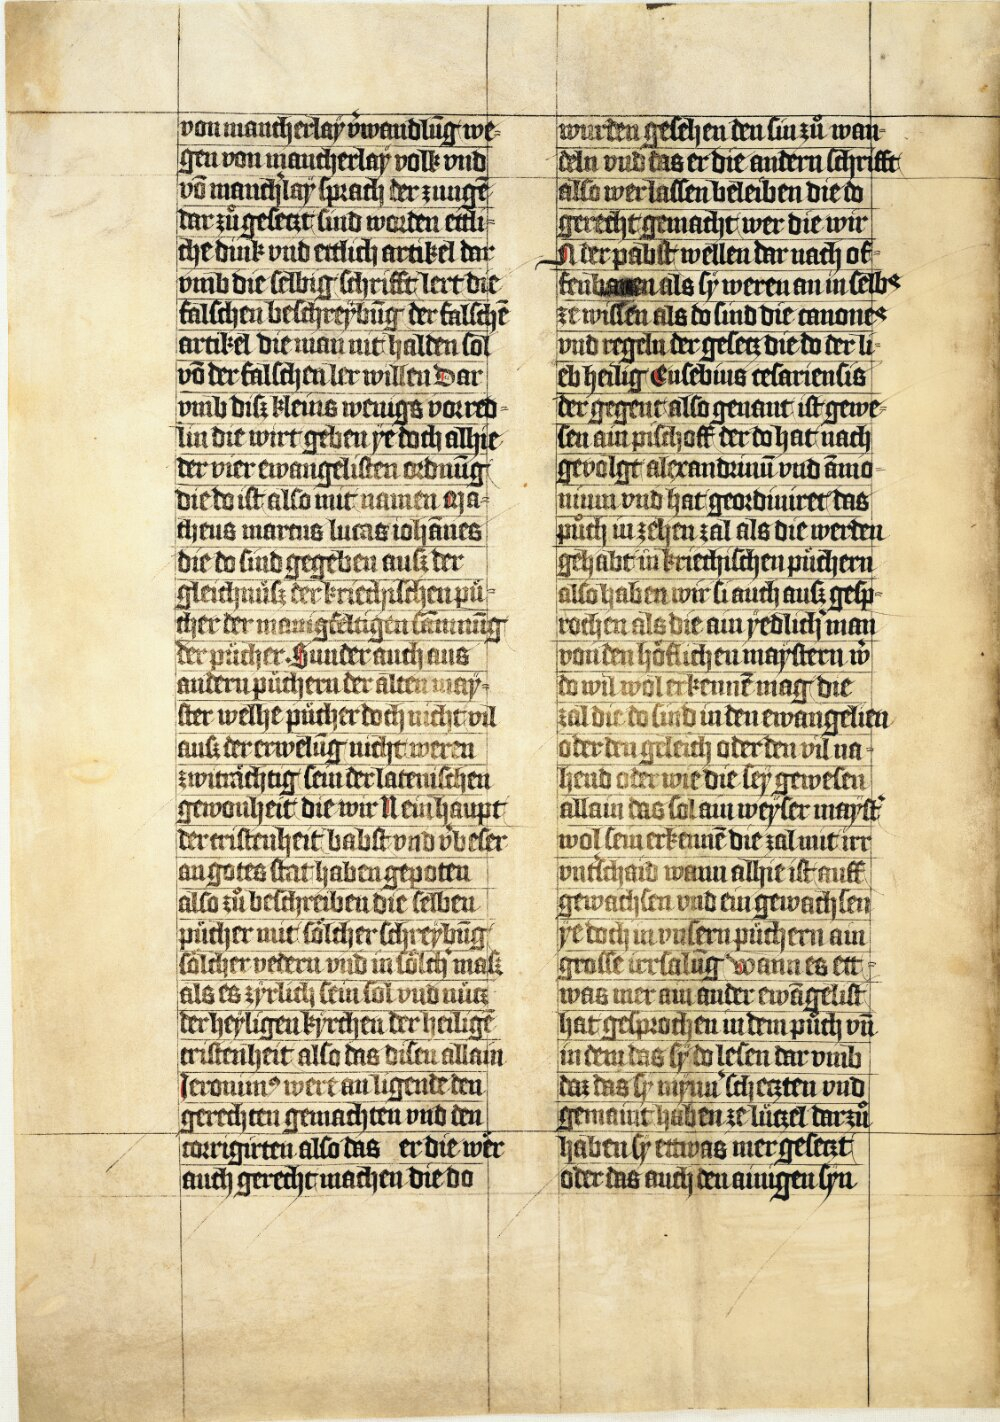 von mancherlaÿ v̾wandlūg we-
gen von mancherlaÿ volk vnd
vō manch̾laÿ sprach der zungē
dar zuͦ gesetzt sind worden ettli-
che dink vnd ettlich artikel dar
vmb die selbig schrifft lert die
falschen beschreÿbūg der falschē
artikel die man nit halden sol
vō der falschen ler willen Dar
vmb disz kleins wenigs vorred-
lin die wirt geben ye doch alhie
der vier ewangelisten ordnūg
die do ist also mit namen Ma-
theus marcus lucas iohānes
die do sind gegeben ausz der
gleichnüsz der kriechischen pü-
cher der manigfeltigen samnūg
der pücher. Sunder auch aus
andern püchern der alten may-
ster welhe pücher doch nicht vil
ausz der erwelūg nicht weren
zwiträchtig sein der lateinischen
gewonheit die wir N ein haupt
der cristenheit babst vnd v̾beser
an gotes stat haben gepoten
also zuͦ beschreiben die selben
pücher mit sölcher schreÿbūg
sölcher vedern vnd in sölch̾ masz
als es zyrlich sein sol vnd nütz
der heyligen kyrchen der heiligē
cristenheit also das disen allain
Jeronimꝰ were an ligende den
gerechten gemachten vnd den
corrigirten also das er die wer
auch gerecht machen die do
wurden gesehen den sin zuͦ wan-
deln vnd das er die andern schrifft
also wer lassen beleiben die do
gerecht gemacht wer die wir
N der pabst wellen dar nach of-
fenbaren als sÿ weren an in selbs
ze wissen als do sind die canones
vnd regeln der gesetz die do der li-
eb heilig Eusebius cesariensis
der gegent also genant ist gewe-
sen ain pischoff der do hat nach
geuolgt alexandrinū vnd āmo-
nium vnd hat geordiniret das
puͦch in zehen zal als die werden
gehabt in kriechischen püchern
also haben wir si auch ausz gesp-
rochen als die ain yedlich̾ man
von den höflichen maystern w̾
do wil wol erkennē mag die
zal die do sind in den ewangelien
oder den geleich oder den vil na-
hend oder wie die sey gewesen
allain das sol ain weyser mayst̾
wol sein erkennē die zal mit irr
vnt̾schaid wann alhie ist auff
gewachsen vnd ein gewachsen
ye doch in vnsern püchern ain
grosse irrsalūg Wann es ett-
was mer ain ander ewāgelist
hat gesprochen in dem puͦch vn̄
in dem das sÿ do lesen dar vmb
daz das sÿ mynn̾ schetzten vnd
gemaint haben ze lützel darzuͦ
haben sÿ ettwas mer gesetzt
oder das auch den ainigen syn